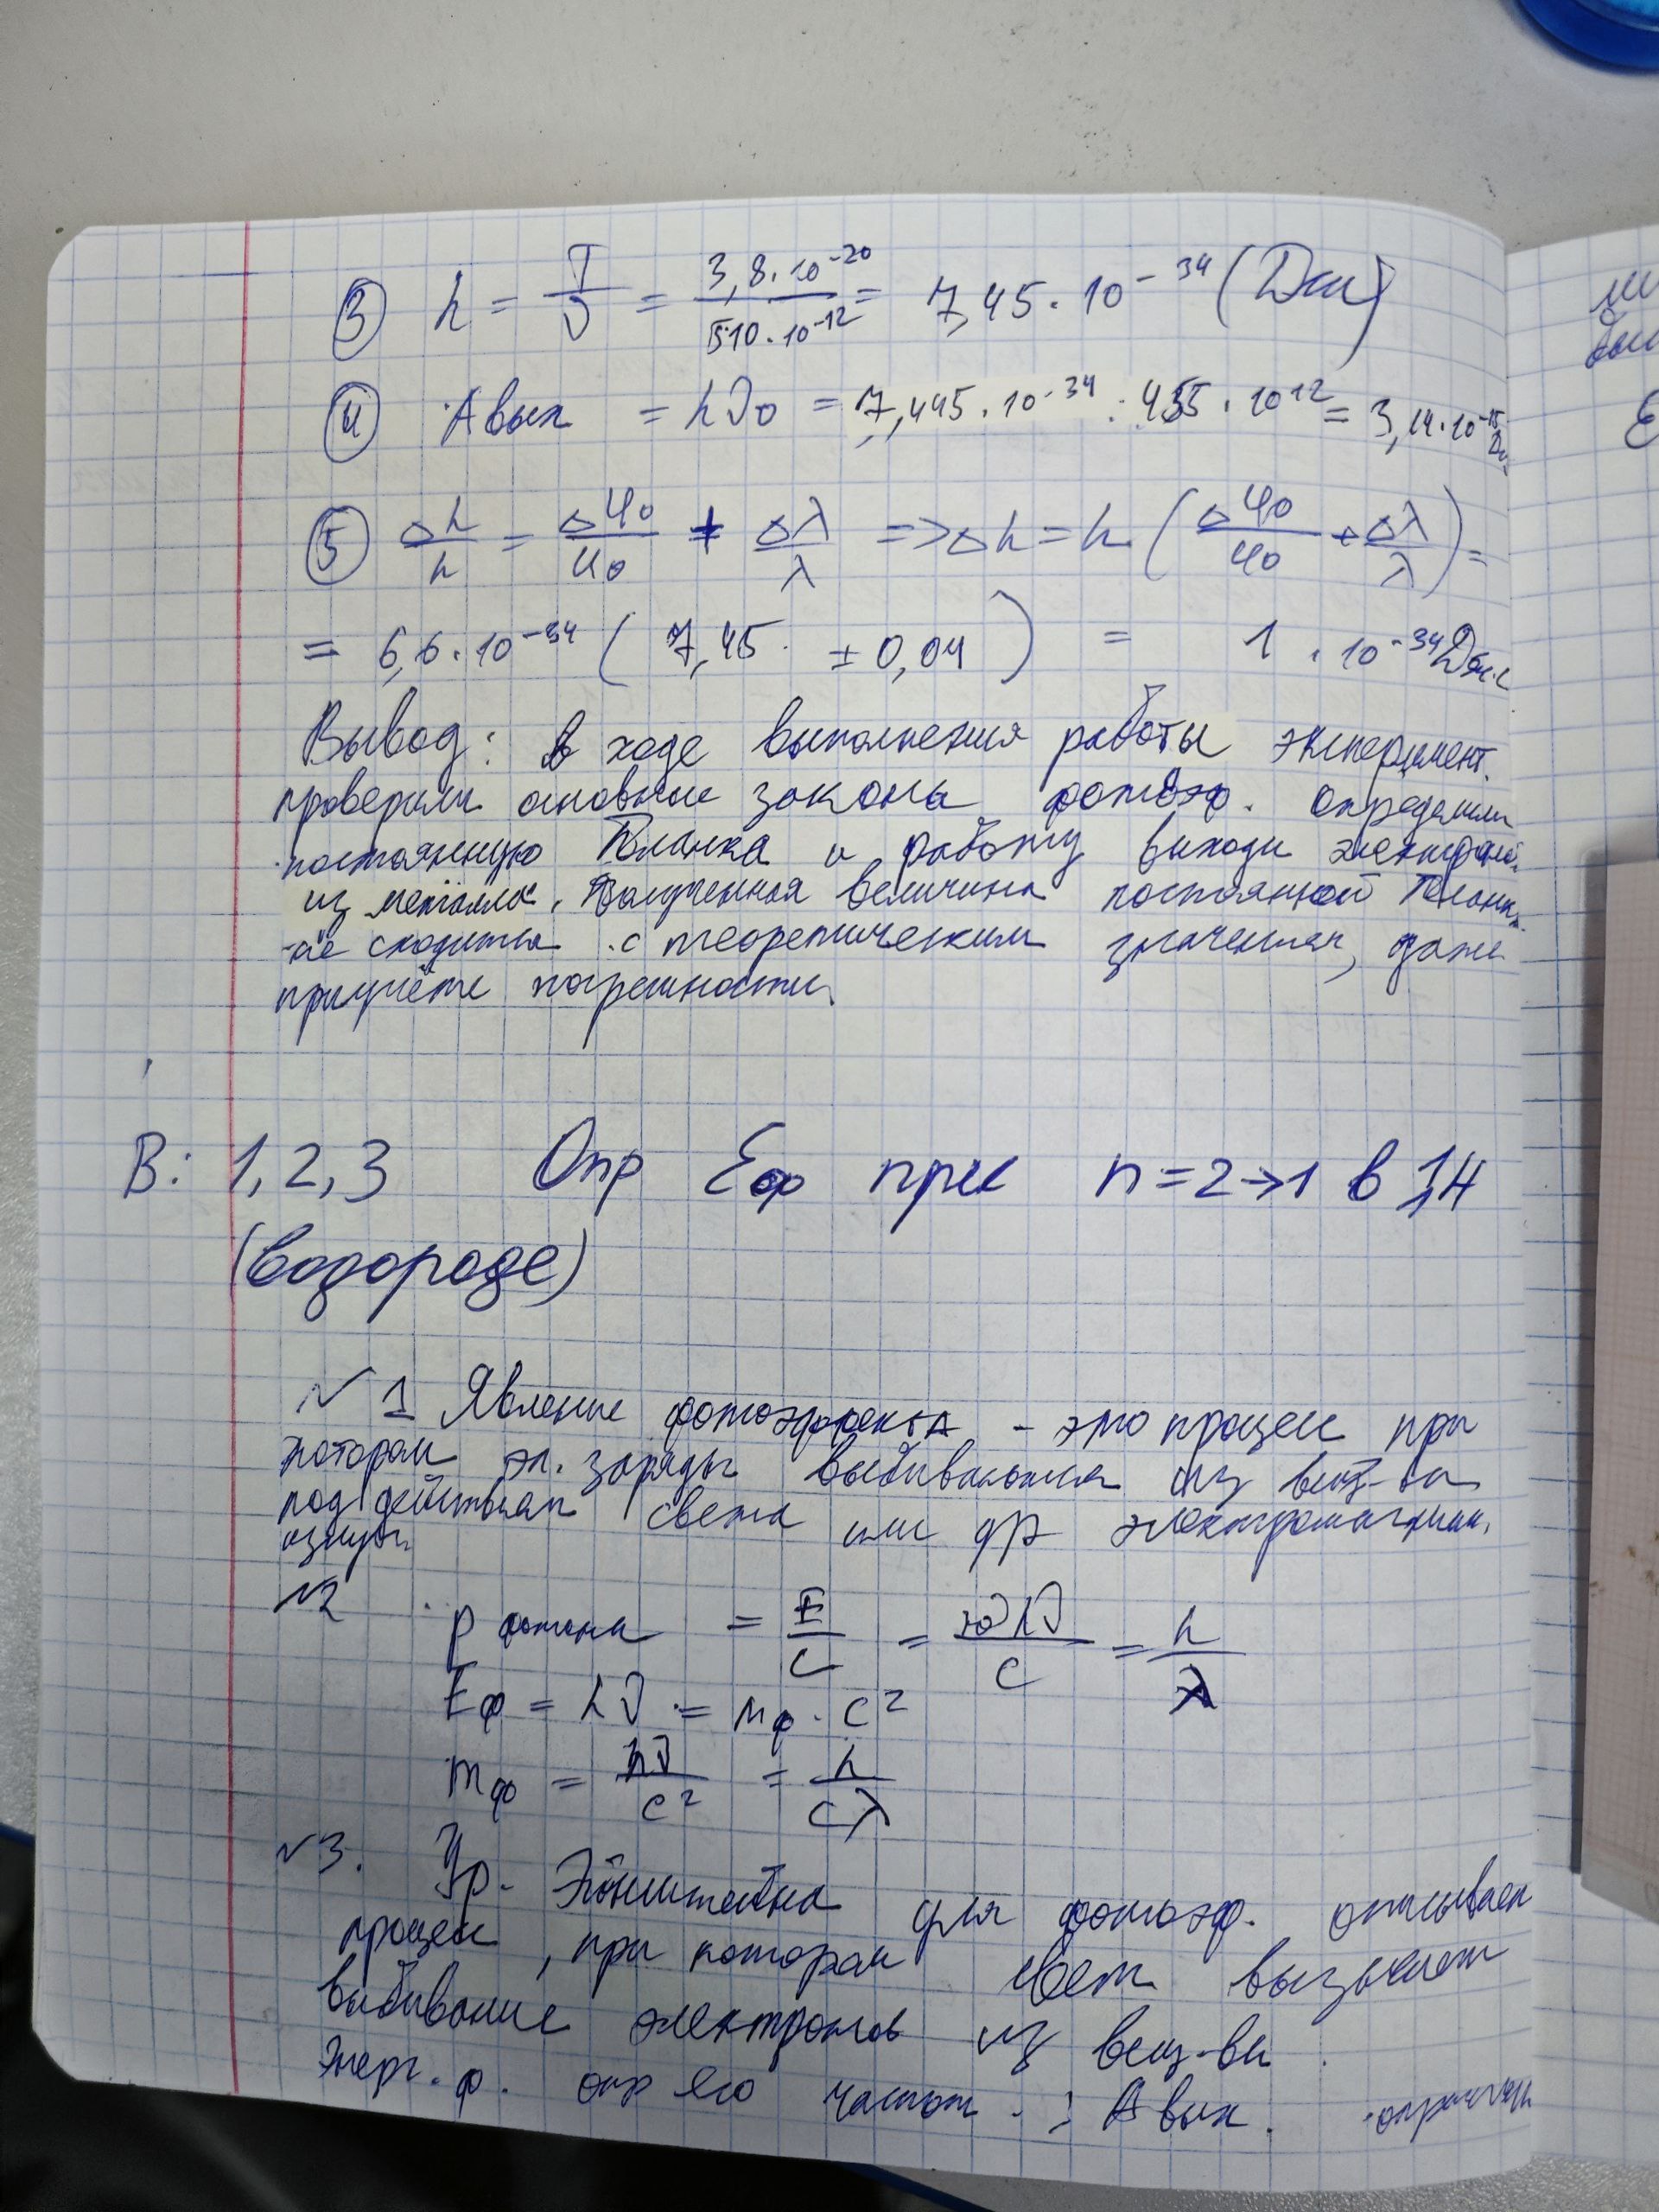 ③ h = T/ν = 3,8·10⁻²⁰/510·10⁻¹² = 7,45·10⁻³⁴ (Дж)
④ Авых = hν₀ = 7,445·10⁻³⁴ · 455·10¹² = 3,14·10⁻¹⁵
⑤ Δh/h = ΔU₀/U₀ + Δλ/λ => Δh = h (ΔU₀/U₀ + Δλ/λ) =
= 6,6·10⁻³⁴ (7,45 ± 0,04) = 1 · 10⁻³⁴ Дж·с
Вывод: в ходе выполнения работы эксперимент.
проверили основные законы фотоэф. определили
постоянную Планка и работу выхода
из металла. Полученная величина постоянной Планк.
не сходится с теоретическим значением, даже
при учёте погрешности.
В: 1, 2, 3 Опр Eф при n=2→1 в
(водороде)
№1 Явление фотоэффекта - это процесс при
котором эл. заряды выбиваются из вещ-ва
под действием света или др электромагнитн.
излуч.
№2 p фотона = E/c = hν/c = h/λ
Eф = hν = mф · c²
mф = hν/c² = h/cλ
№3. Ур. Эйнштейна для фотоэф. описывает
процесс, при котором свет вызывает
выбивание электронов из вещ-ва
Энерг. ф. опр его частот. Авых.